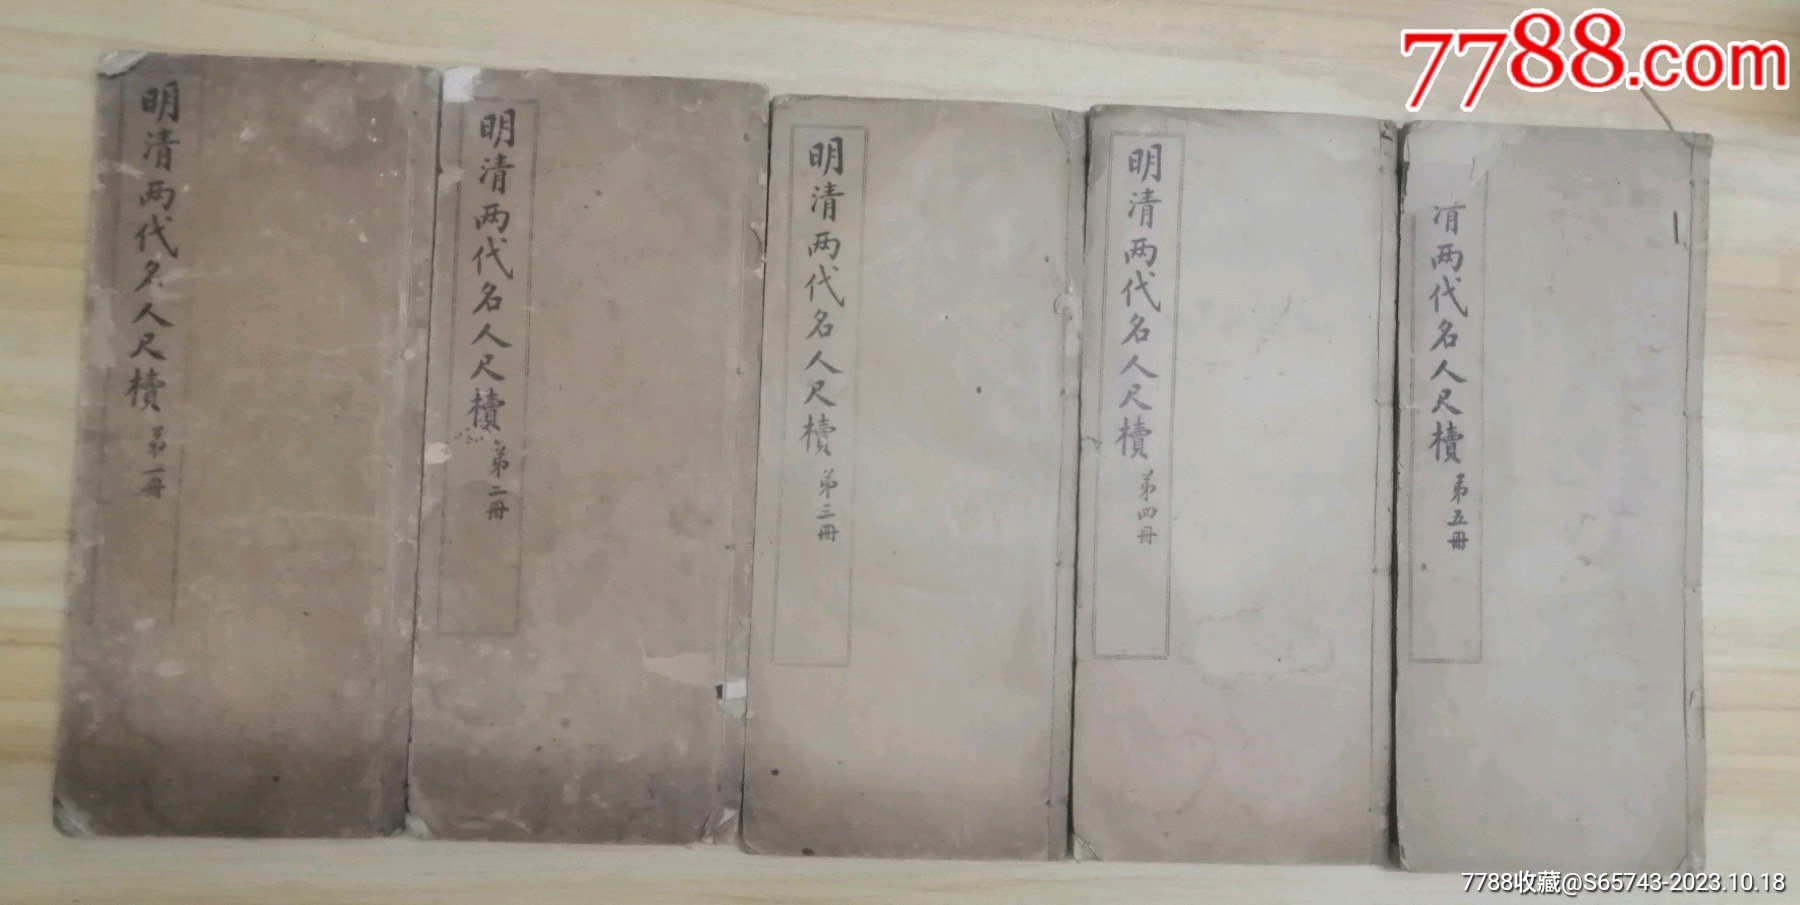 7788.com
明清两代名人尺牍
第一册
明清两代名人尺牍
第二冊
明清两代名人尺牍
第三冊
明清两代名人尺牍
第四冊
清两代名人尺牍
第五冊
7788收藏@S65743-2023.10.18